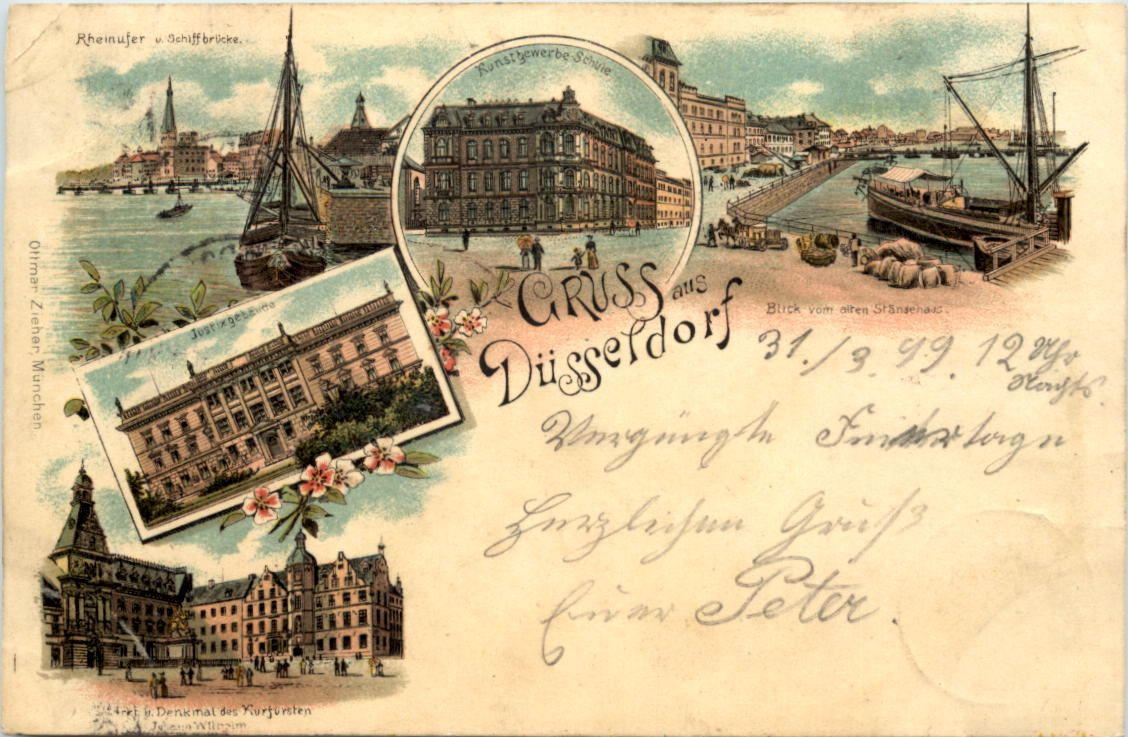 Rheinufer u. Schiffbrücke.
Kunstgewerbe-Schule.
Blick vom alten Ständehaus.
GRUSS aus
Düsseldorf
Justizgebäude
Ottmar Zieher, München.
31./3.99. 12 Uhr
Nachts.
Vergnügte Feiertage
Herzlichen Gruß
Euer Peter.
Markt u. Denkmal des Kurfürsten
Johann Wilhelm